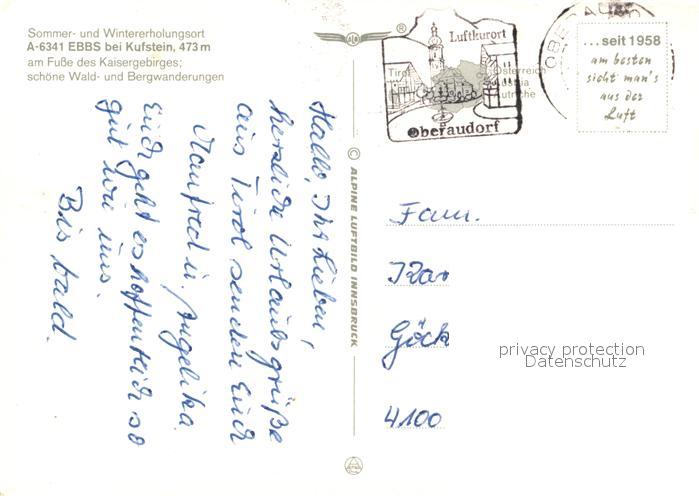 Sommer- und Wintererholungsort
A-6341 EBBS bei Kufstein, 473 m
am Fuße des Kaisergebirges;
schöne Wald- und Bergwanderungen
Hallo, Ihr Lieben,
herzliche Urlaubsgrüße
aus Tirol senden Euch
Manfred u. Angelika.
Euch geht es hoffentlich so
gut wie uns.
Bis bald.
© ALPINE LUFTBILD INNSBRUCK
®
Luftkurort
Tirol
Österreich
Oberaudorf
...seit 1958
am besten
sieht man's
aus der
Luft
Fam.
Kar
Göck
4100
privacy protection
Datenschutz